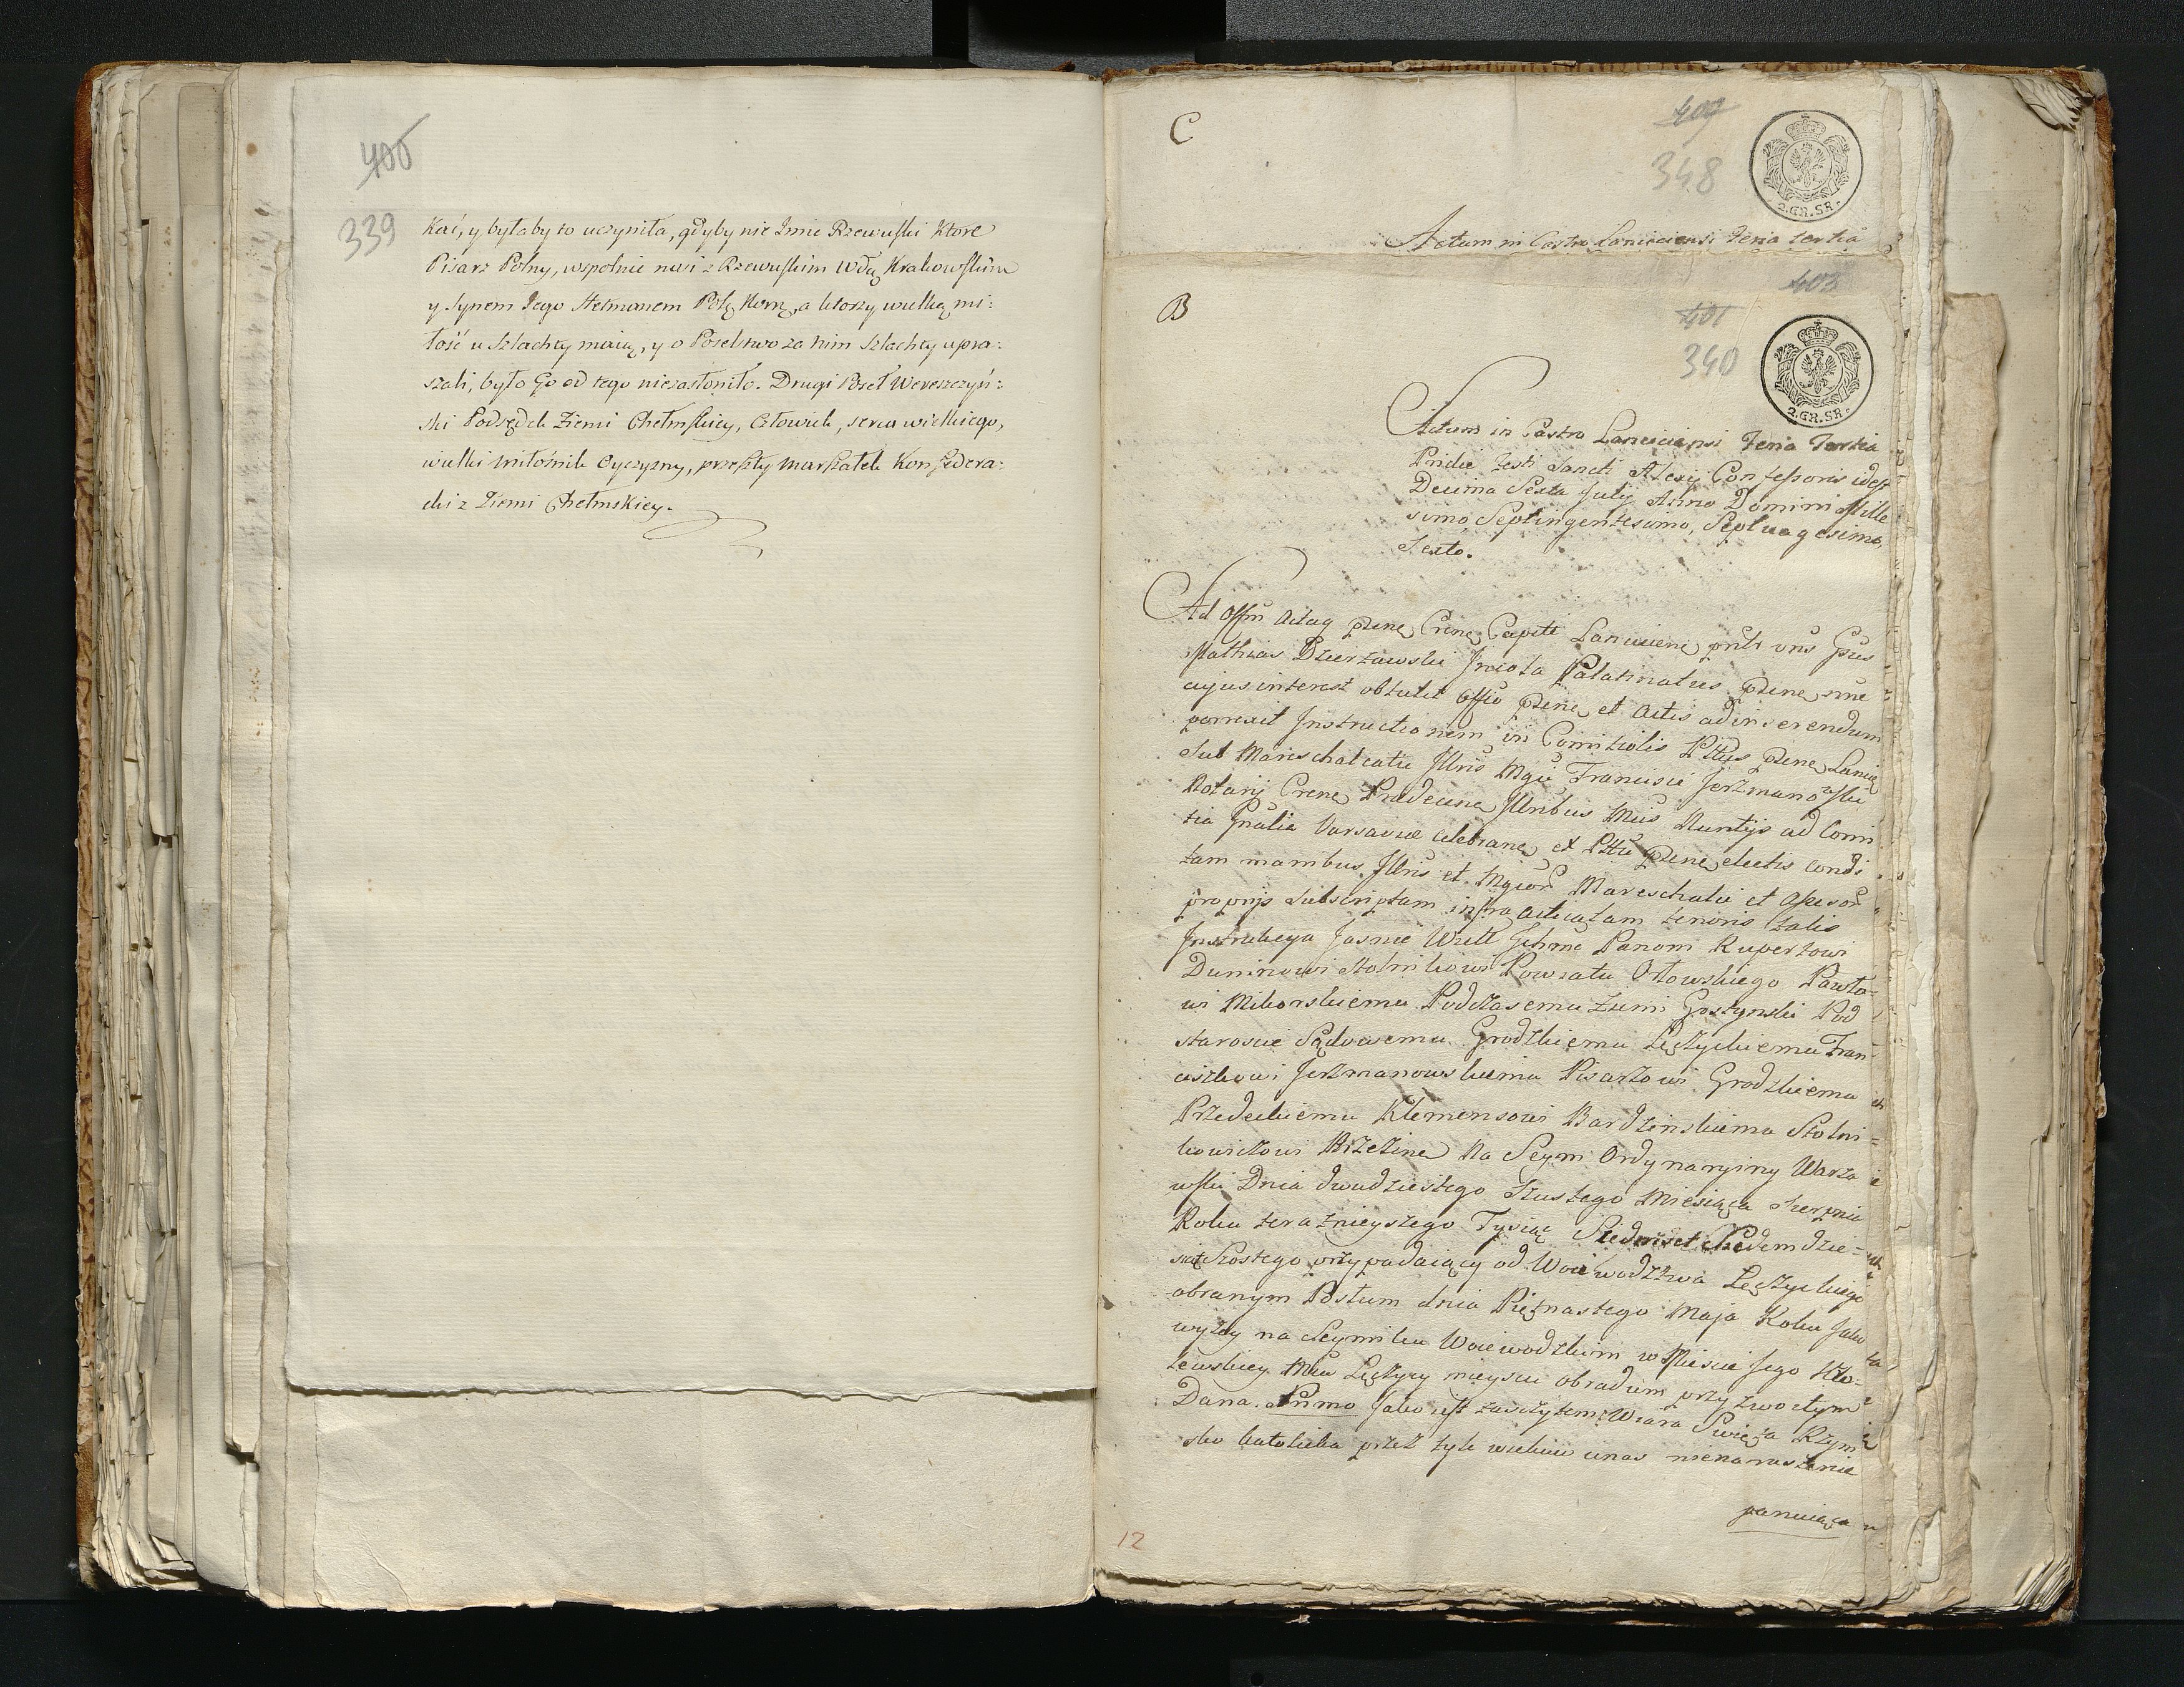 400
339
kać, y byłaby to uczyniła, gdyby nie Imie Rzewuski ktore
Pisarz Polny, wspolnie nosi z Rzewuskim Wdą Krakowskim
y Synem Jego Hetmanem Polą Korą, a ktorzy wielką mi:
łość u Szlachty maią, y o Poselstwo za nim Szlachtę upra:
szali, było Go od tego niezasłoniło. Drugi Poseł Wereszczyń:
ski Podsędek Ziemi Chełmskiey, Człowiek, serca wielkiego,
wielki miłośnik Oyczyzny, przeszły Marszałek Konfedera:
cki z Ziemi Chełmskiey.
C
402
348
2.GR.SR.
Actum in Castro Lanciciensi Feria tertia
B
403
401
340
2.GR.SR.
Actum in Castro Lanciciensi Feria Tertia
Pridie Festi Sancti Alexij Confessoris idest
Decima Sexta July Anno Domini Mille
simo Septingentesimo, Septuagesimo,
Sexto.
Ad Offm Actaq pzne Crene Capite Lanciciene pnlr vns Gsus
Mathias Dzierzawski Incola Palatinatus pzne sine
cujus interest obtulit Offio pzne et Actis ad inserendum
porrexit Instructionem in Comitiolis Plttus pzne Lancic
Sub Mareschalcatu Illris Mgci Francisci Jerzmanowski
Notarij Crene Przedecene Illribus Mcis Nuntijs ad Comi
tia Gnalia Varsaviæ celebrane et Plttu pzne electis condi
tam manibus Illris et Mgcor Mareschalci et Assesor
proprijs subscriptam infra acticatam tenoris talis
Instrukcya Jasnie Wiel Jchmc Panom Rupertowi
Duninowi Stolnikowi Powiatu Orłowskiego Pawło-
wi Mikorskiemu Podczasemu Ziemi Gostynski Pod
staroscie Sądowemu Grodzkiemu Łęczyckiemu Fran
ciszkowi Jerzmanowskiemu Pisarzowi Grodzkiemu
Przedeckiemu Klemensowi Bardzinskiemu Stolni=
kowiczowi Brzezine Na Seym Ordynaryiny Warsza
wski Dnia dwudziestego Szustego Miesiąca Sierpnia
Roku teraznieyszego Tysiąc Siedmset Siedemdzie=
siąt Szostego przypadaiący od Woiewodztwa Łęczyckiego
obranym Posłum dnia Piętnastego Maja Roku jako
wyżey na Seymiku Woiewodzkim w Miescie Jego Kro-
lewskiey Mci Łęczycy mieyscu obradum przyzwoitym
Dana. Primo Jako iest zaszczytem Wiara Swięta Rzym
sko katolicka przez tyle wiekow unas nienaruszenie
panuiąca
12